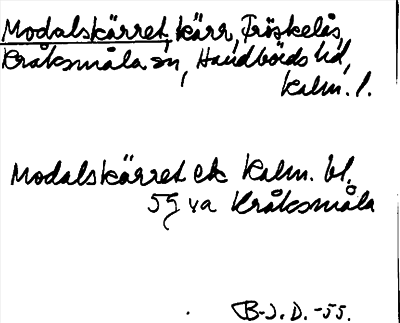 Modalskärret, kärr, Fröskelås,
Kråksmåla sn, Handbörds hd,
Kalm. l.
Modalskärret ek Kalm. bl.
59 va Kråksmåla
B-J. D. -55.